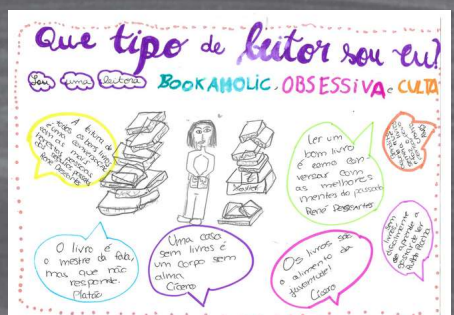 Que tipo de leitor sou eu?
Sou uma leitora BOOKAHOLIC, OBSESSIVA e CULTA
A leitura de
todos os bons livros
é uma conversação
com as mais
honestas pessoas
dos séculos passados
René Descartes
Ler um
bom livro
é como con-
versar com
as melhores
mentes do passado
René Descartes
O livro é
o mestre da fala,
mas que não
responde.
Platão
Uma casa
sem livros é
um corpo sem
alma
Cícero
Os livros são
o alimento da
juventude!
Cícero
Sem livro,
dificilmente
se aprende a
gostar de ler
Ruth Rocha